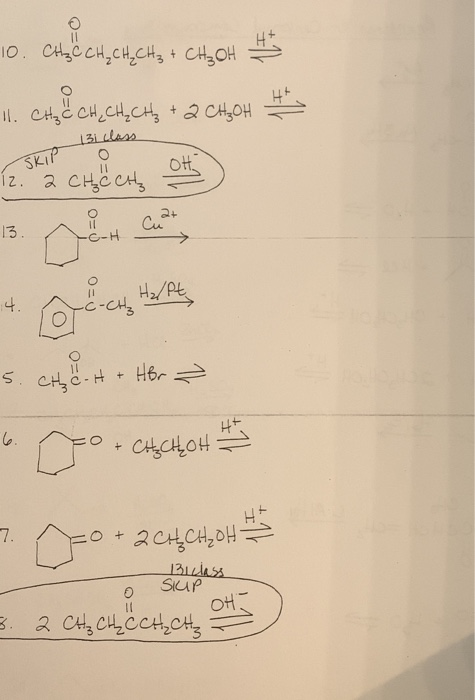 O
10. CH₃CCH₂CH₂CH₃ + CH₃OH H⁺ ⇌
O
11. CH₃CCH₂CH₂CH₃ + 2 CH₃OH H⁺ ⇌
131 class
SKIP O
12. 2 CH₃CCH₃ OH⁻ ⇌
O
13. C-H Cu²⁺ →
O
4. C-CH₃ H₂/Pt →
O
5. CH₃C-H + HBr ⇌
6. =O + CH₃CH₂OH H⁺ ⇌
7. =O + 2 CH₃CH₂OH H⁺ ⇌
131 class
SKIP
O
8. 2 CH₃CH₂CCH₂CH₃ OH⁻ ⇌